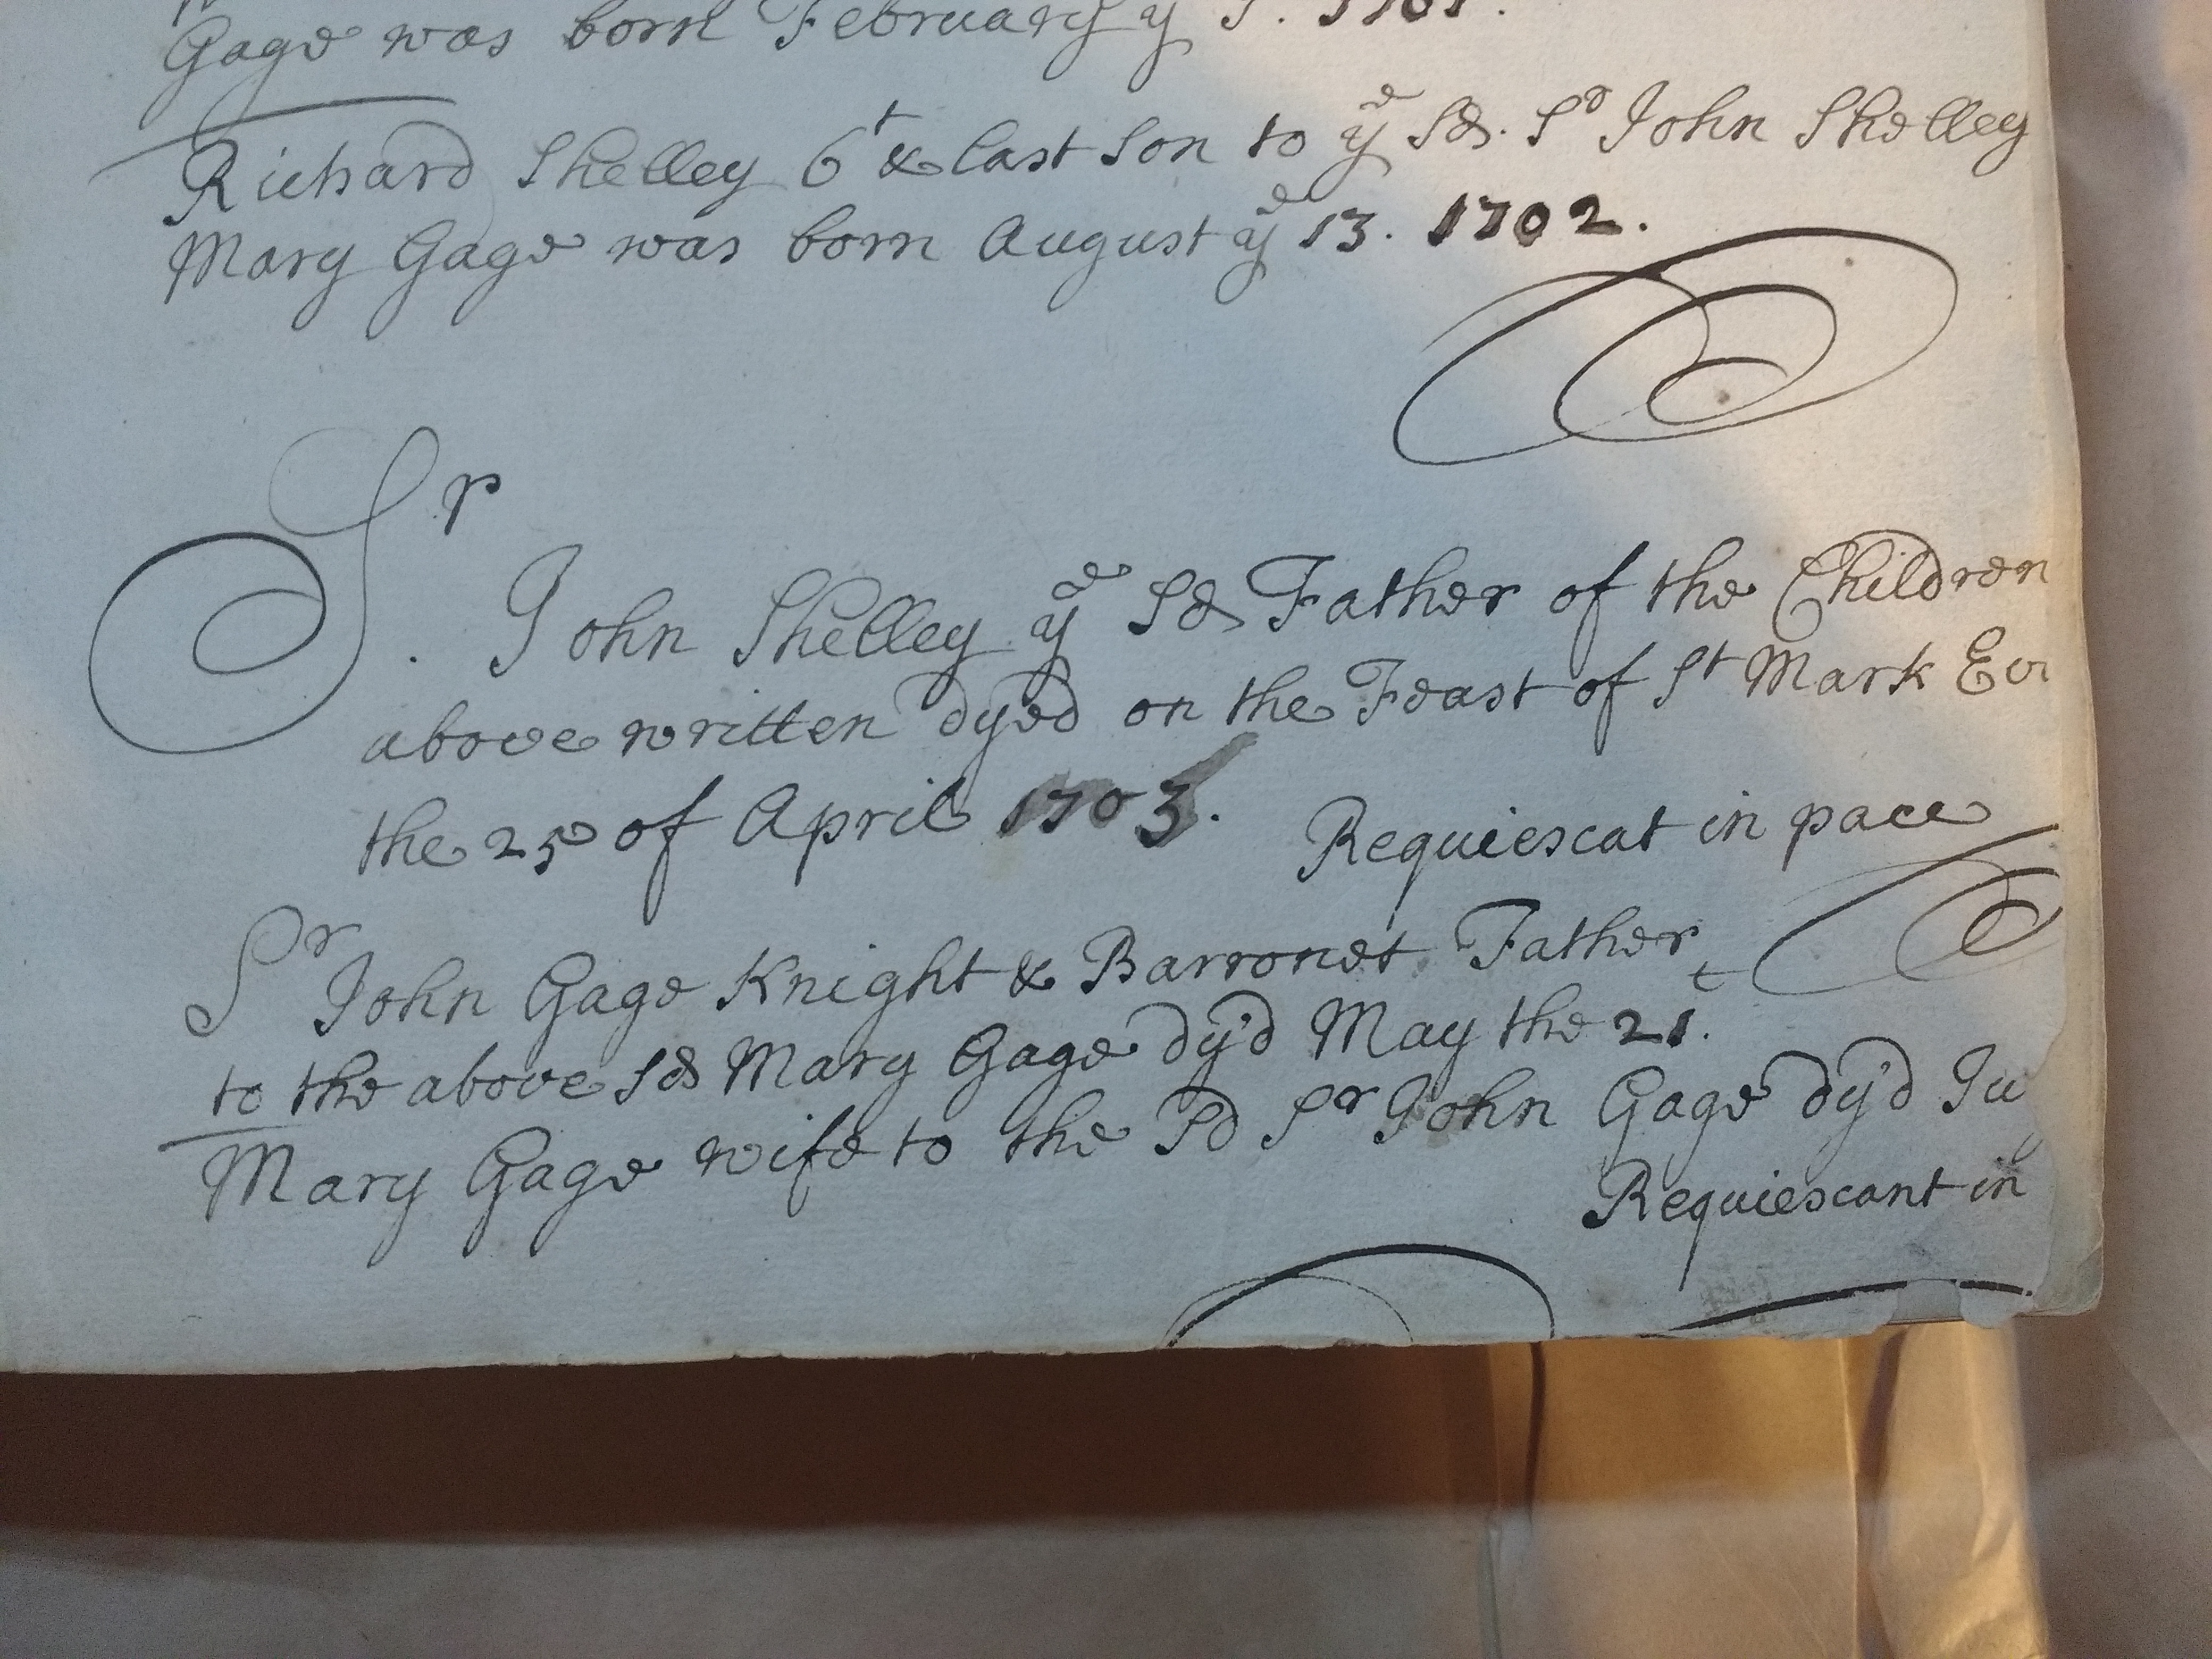 Gage was born February yͤ 1701.
Richard Shelley 6ᵗ & last Son to yᵉ Sd. Sʳ John Shelley
Mary Gage was born August yᵉ 13. 1702.
Sʳ. John Shelley yᵉ Sd Father of the Children
above written dyed on the Feast of Sᵗ Mark Ev
the 25 of April 1703. Requiescat in pace
Sʳ John Gage Knight & Barronet Father
to the above Sd Mary Gage dy'd May the 21ᵗ.
Mary Gage wife to the Sd Sʳ John Gage dy'd Ju
Requiescant in